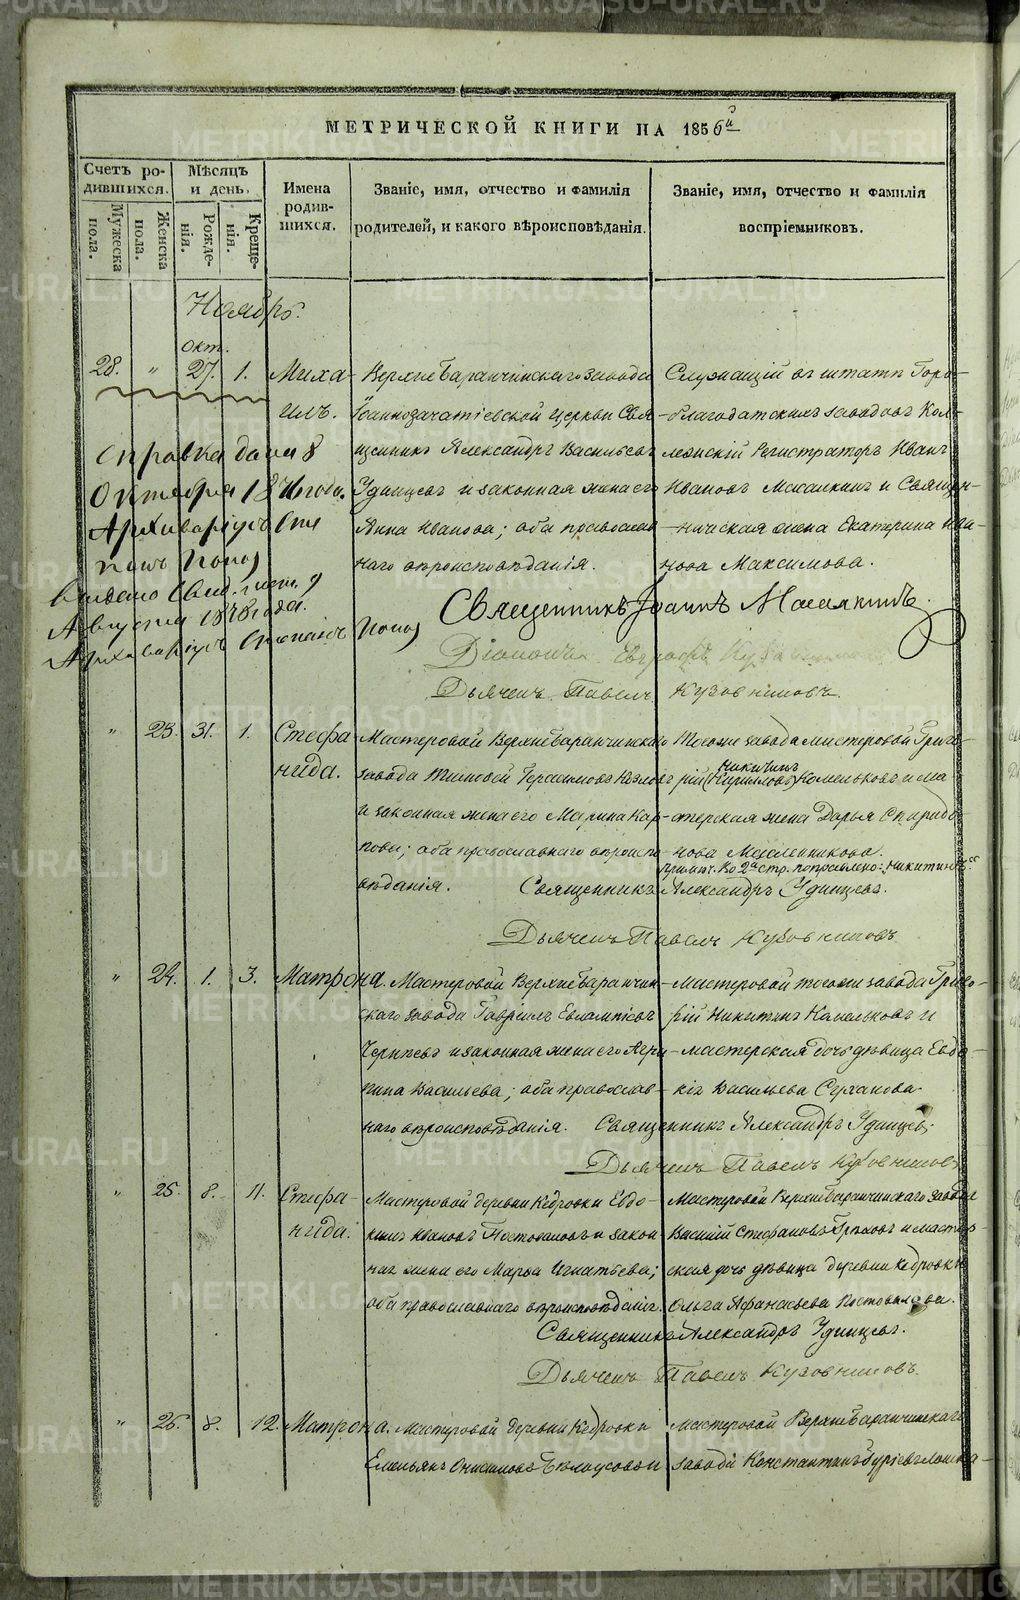 МЕТРИЧЕСКОЙ КНИГИ НА 1856й
Счетъ ро-
дившихся.
Мужеска
пола.
Женска
пола.
Мѣсяцъ
и день.
Рожде-
нія.
Креще-
нія.
Имена
родив-
шихся.
Званіе, имя, отчество и фамилія
родителей, и какого вѣроисповѣданія.
Званіе, имя, отчество и фамилія
воспріемниковъ.
Ноябрь.
окт.
28. " 27. 1. Миха-
илъ.
Верхнебаранчинскаго завода
Іоаннозачатіевской Церкви Свя-
щенникъ Александръ Васильевъ
Удинцевъ и законная жена его
Анна Иванова; оба православ-
наго вѣроисповѣданія.
Служащій въ штатѣ Горо-
благодатскихъ заводовъ Кол-
лежскій Регистраторъ Иванъ
Ивановъ Масалкинъ и Священ-
ническая жена Екатерина Ива-
нова Максимова.
Справка дана 8
Октября 1876 года.
Архиваріусъ Сте
панъ Попов
выдано свид.
Августа 1878 года.
Архиваріусъ Степанъ Попов
Священникъ Іоаннъ Масалкинъ.
Діаконъ Евграфъ
Дьячекъ Павелъ Кузовниковъ.
" 23. 31. 1. Стефа-
нида.
Мастеровой Верхнебаранчинскаго
завода Тимофей Герасимовъ Козловъ
и законная жена его Марина Кар-
пова; оба православнаго вѣроиспо-
вѣданія.
Тогоже завода мастеровой Григо-
рій (Кирилловъ) Никитинъ Камельковъ и ма-
стерская жена Дарья Спиридо-
нова Масленникова.
Примѣч. Во 2й стр. поправлено: Никитинъ.
Священникъ Александръ Удинцевъ.
Дьячекъ Павелъ Кузовниковъ
" 24. 1. 3. Матрона.
Мастеровой Верхнебаранчин-
скаго завода Гавриилъ Евлампіевъ
Черепневъ и законная жена его Агри-
пина Васильева; оба православ-
наго вѣроисповѣданія.
Мастеровой тогоже завода Григо-
рій Никитинъ Камельковъ и
мастерская дочь дѣвица Евдо-
кія Васильева Суханова.
Священникъ Александръ Удинцевъ.
Дьячекъ Павелъ Кузовниковъ
" 25. 8. 11. Стефа-
нида.
Мастеровой деревни Кедровки Евдо-
кимъ Ивановъ Постоваловъ и закон-
ная жена его Марья Игнатьева;
оба православнаго вѣроисповѣданія.
Мастеровой Верхнебаранчинскаго завода
Василій Стефановъ Грѣховъ и мастер-
ская дочь дѣвица деревни Кедровки
Ольга Афанасьева Постовалова.
Священникъ Александръ Удинцевъ.
Дьячекъ Павелъ Кузовниковъ.
" 26. 8. 12. Матрона.
Мастеровой деревни Кедровки
Емельянъ Онисимовъ Бѣлоусовъ и
Мастеровой Верхнебаранчинскаго
завода Константинъ Гурьевъ Лошка-
METRIKI.GASO-URAL.RU